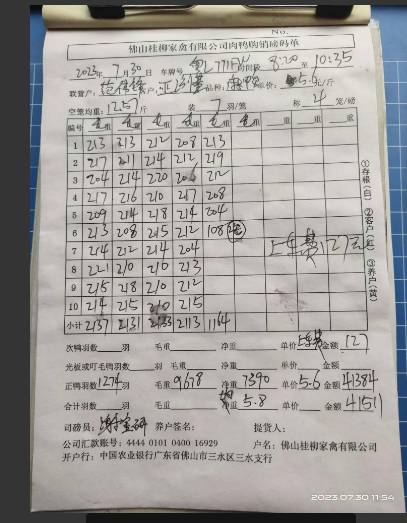 No.
佛山桂柳家禽有限公司肉鸭购销磅码单
2023年7月30日 车牌号 时间段 8:20至10:35
联营户: 客户: 品种: 单价: 5.6元/斤
空笼均重: 12.57斤 装 7 羽/笼 称 4 笼/磅
编号 毛重 毛重 毛重 毛重 毛重 重 重 重
1 213 213 212 208 213
2 217 211 214 212 219
3 204 214 220 206 212
4 217 216 210 217 208
5 209 214 218 214 204
6 213 208 215 212 108
7 214 212 214 204
8 221 210 210 213
9 215 218 210 212
10 214 215 210 215
小计 2137 2131 2133 2113 1164
上车费127元
①存根(白) ②客户(红) ③养户(黄)
次鸭羽数 羽 毛重 净重 单价 上车费 金额 127
光板或叮毛鸭羽数 羽 毛重 净重 单价 金额
正鸭羽数 1274 羽 毛重 9678 净重 7390 单价 5.6 金额 41384
合计羽数 羽 毛重 净重 均 5.8 单价 金额 41511
司磅员: 养户签名: 提货人:
公司汇款账号: 4444 0101 0400 16929 户名: 佛山桂柳家禽有限公司
开户行: 中国农业银行广东省佛山市三水区三水支行
2023.07.30 11:54